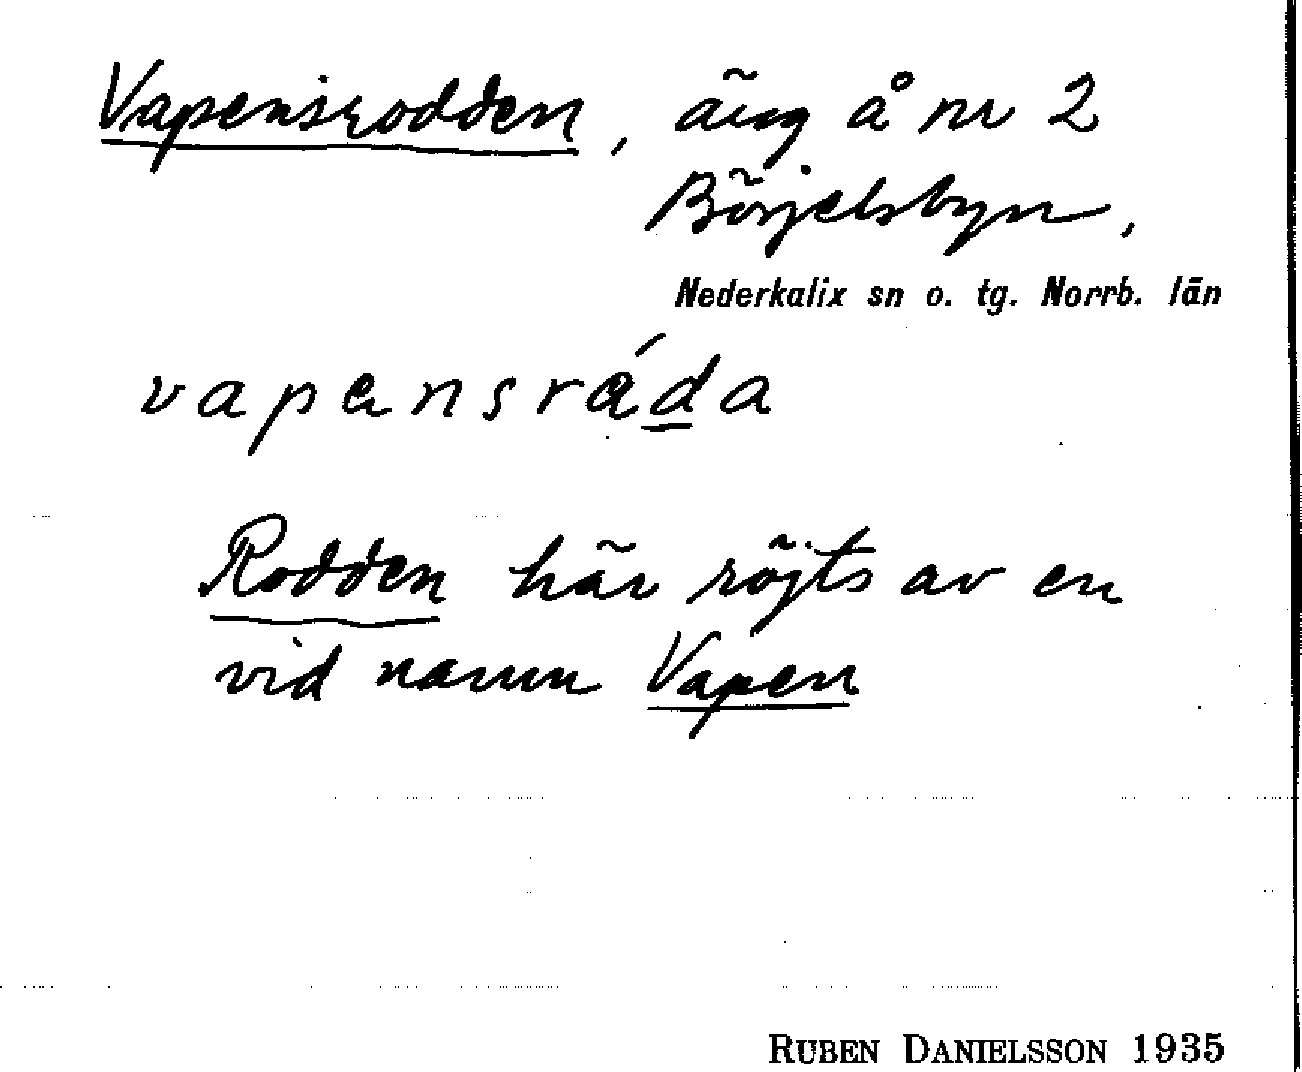 Vapensrodden, äng å nr 2
Börjelsbyn,
Nederkalix sn o. tg. Norrb. län
vapensráda
Rodden här röjts av en
vid namn Vapen
RUBEN DANIELSSON 1935